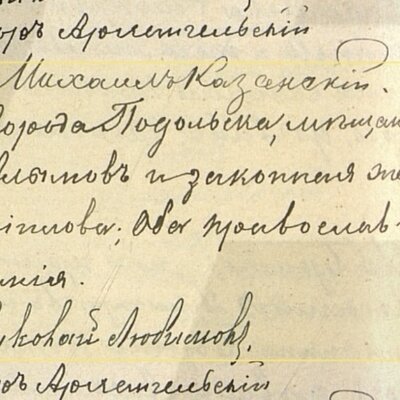 Архангельскій
Михаилъ Казанскій.
города Подольска, мѣщан
и законная же
Оба православ
нія.
Николай Любимовъ.
Архангельскій